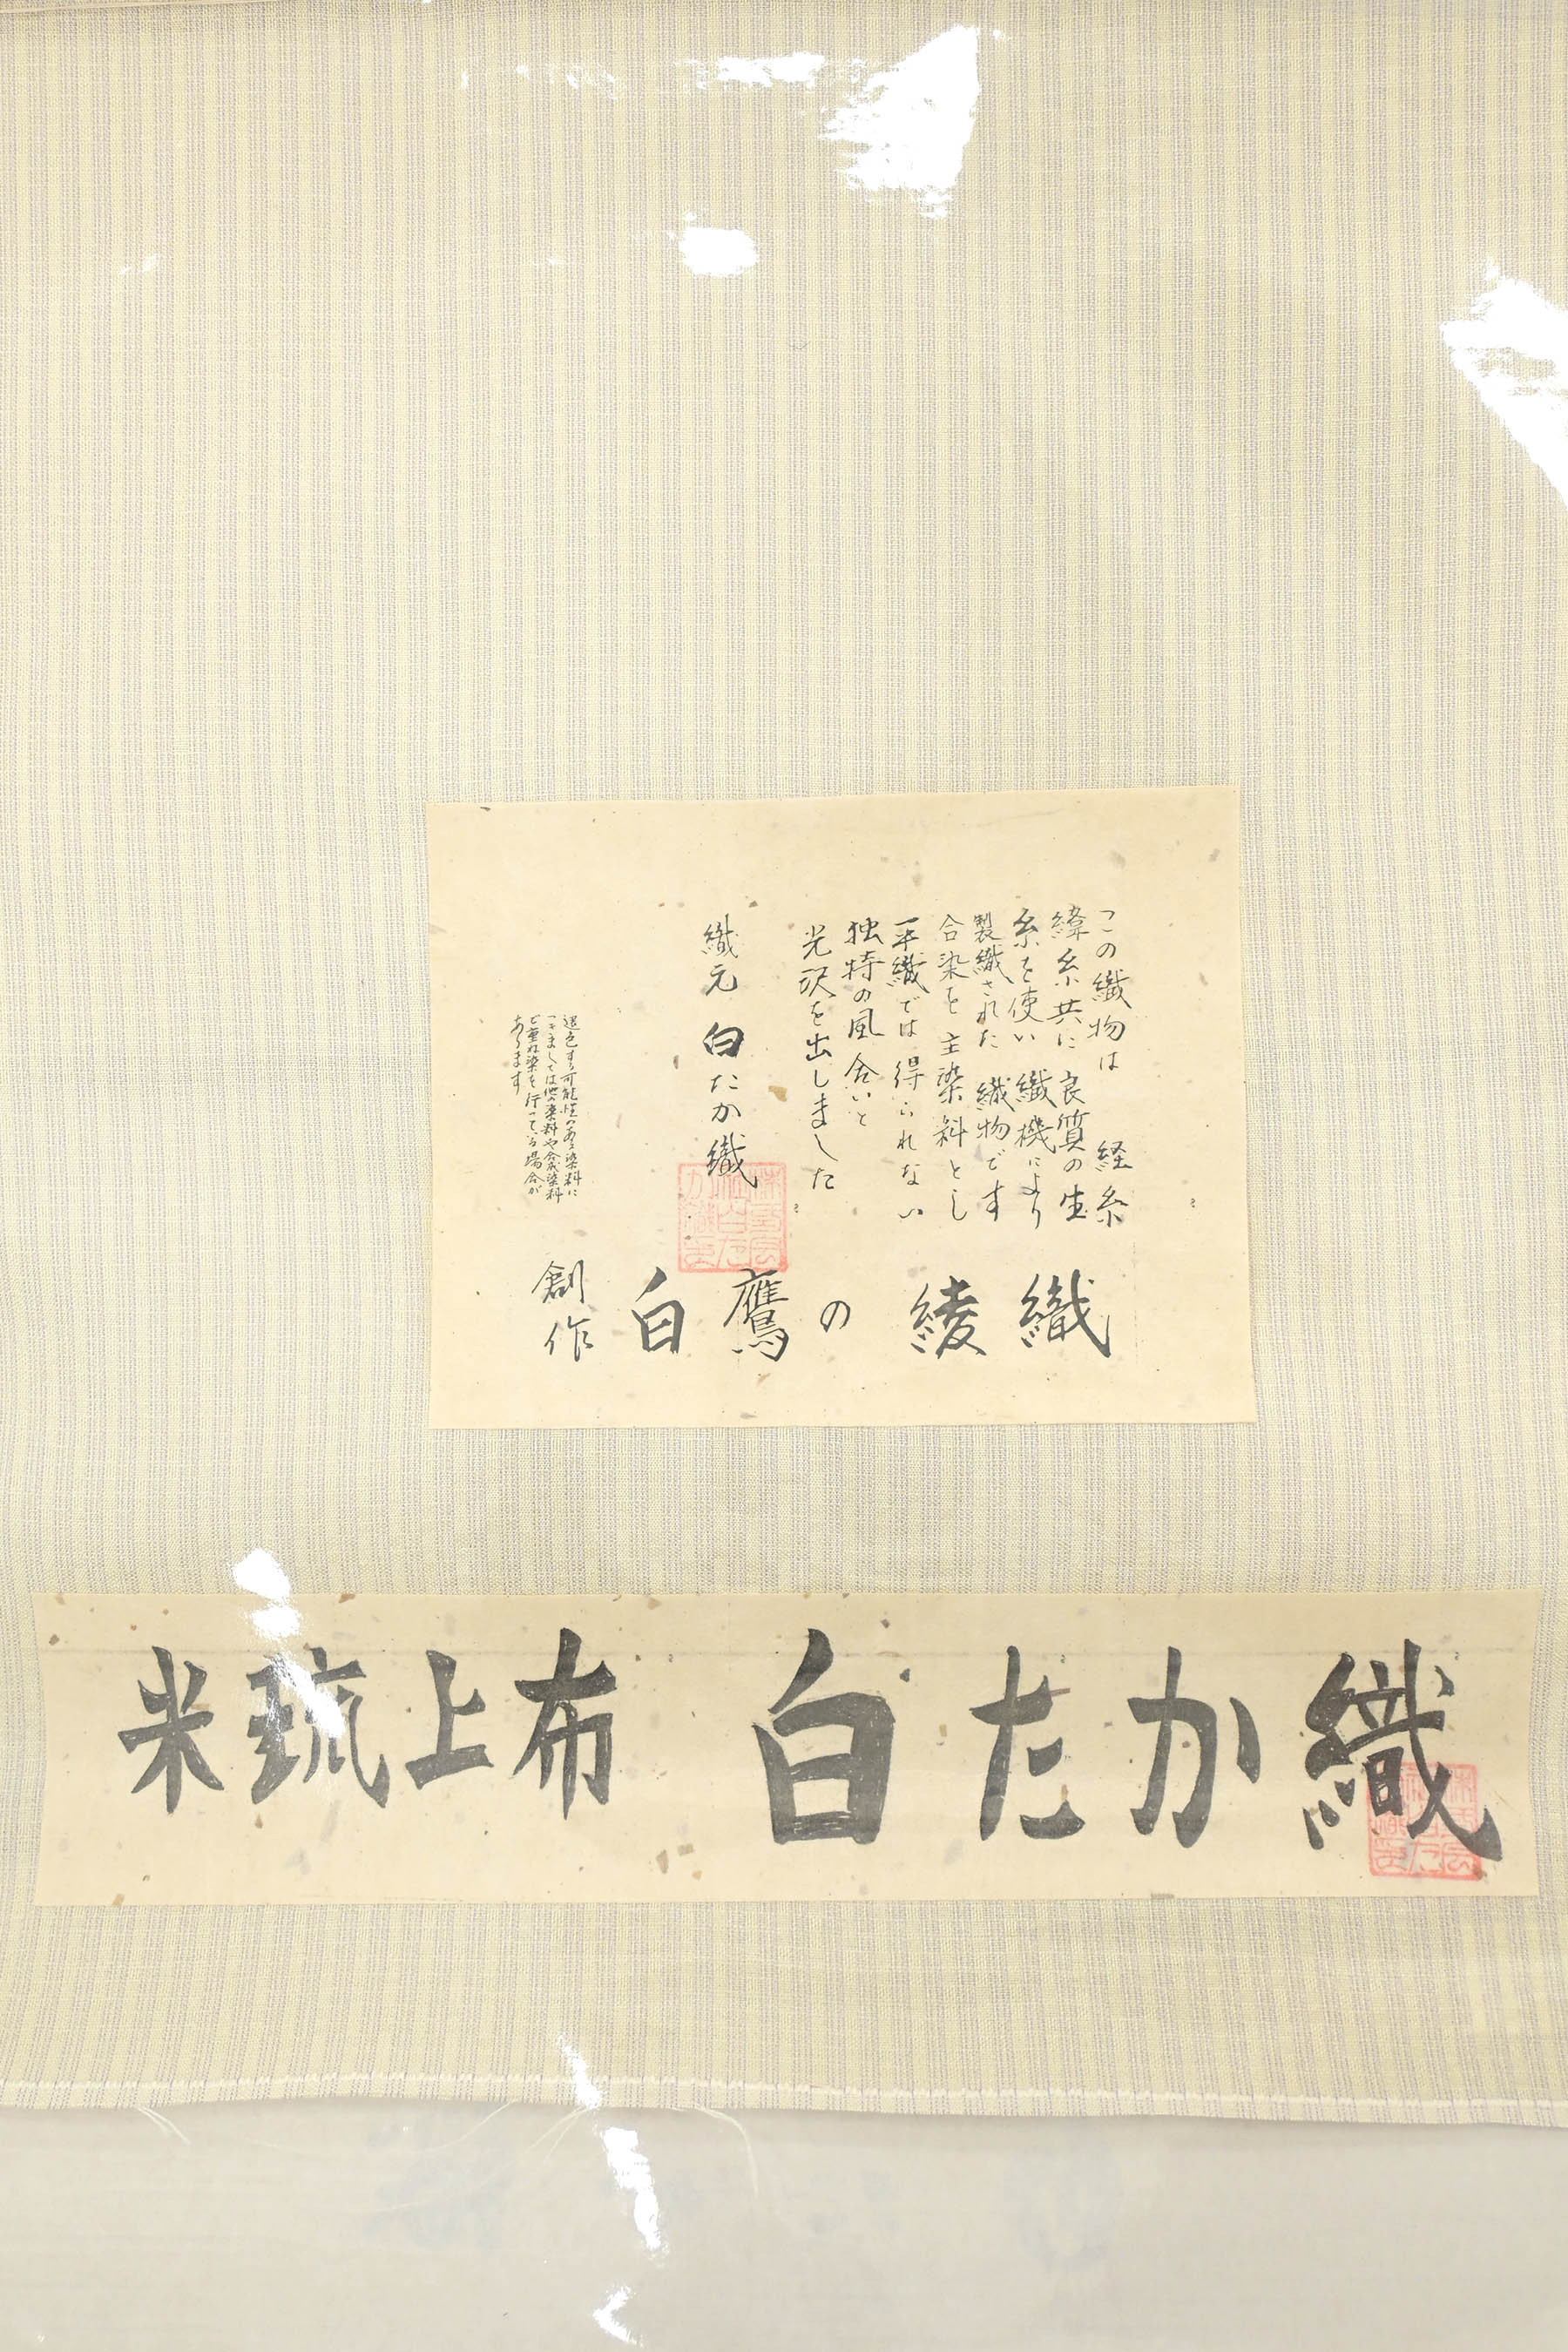 この織物は 経糸
緯糸共に 良質の生
糸を使い 織機により
製織された 織物です
合染を 主染料とし
平織では得られない
独特の風合いと
光沢を出しました
織元 白たか織
退色する可能性のある染料に
つきましては他の染料や合成染料
と重ね染を行っている場合が
あります
創作 白鷹の綾織
米琉上布 白たか織